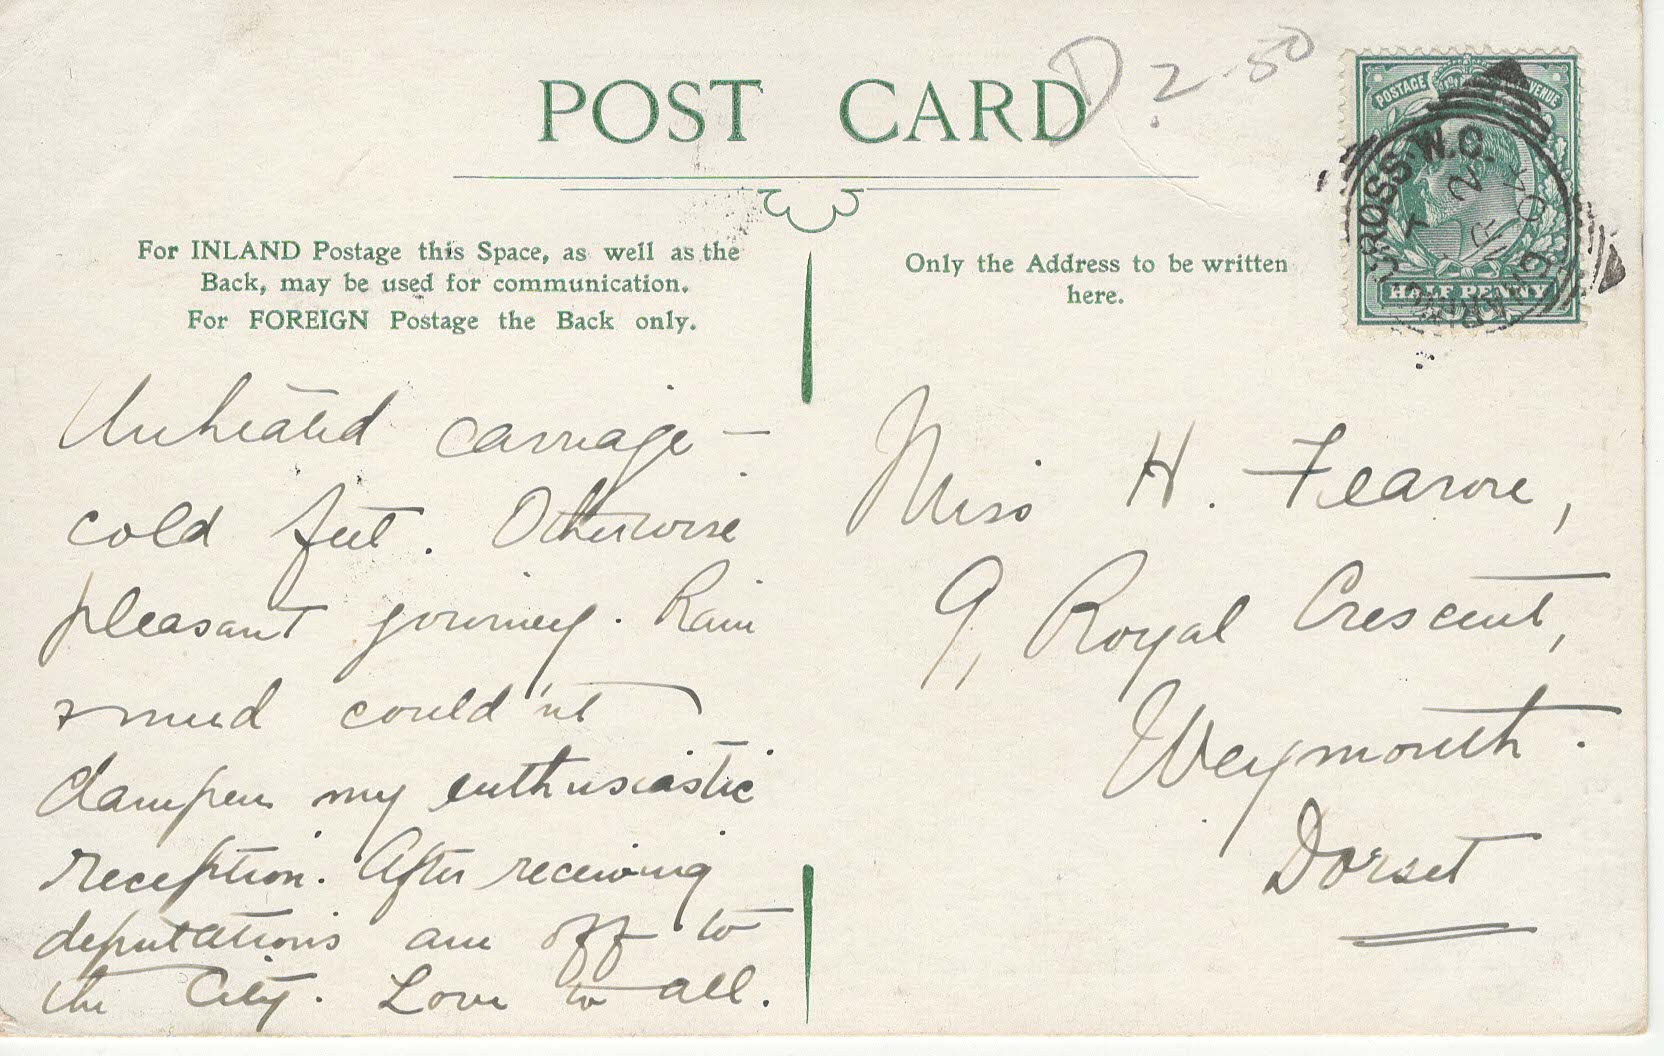 POST CARD
D 2-50
POSTAGE REVENUE
CROSS. W.C.
CHARING
HALF PENNY
For INLAND Postage this Space, as well as the
Back, may be used for communication.
For FOREIGN Postage the Back only.
Only the Address to be written
here.
Unheated carriage –
cold feet. Otherwise
pleasant journey. Rain
& mud could'nt
dampen my enthusiastic
reception. After receiving
deputations am off to
the City. Love to all.
Miss H. Fearore,
9, Royal Crescent,
Weymouth.
Dorset